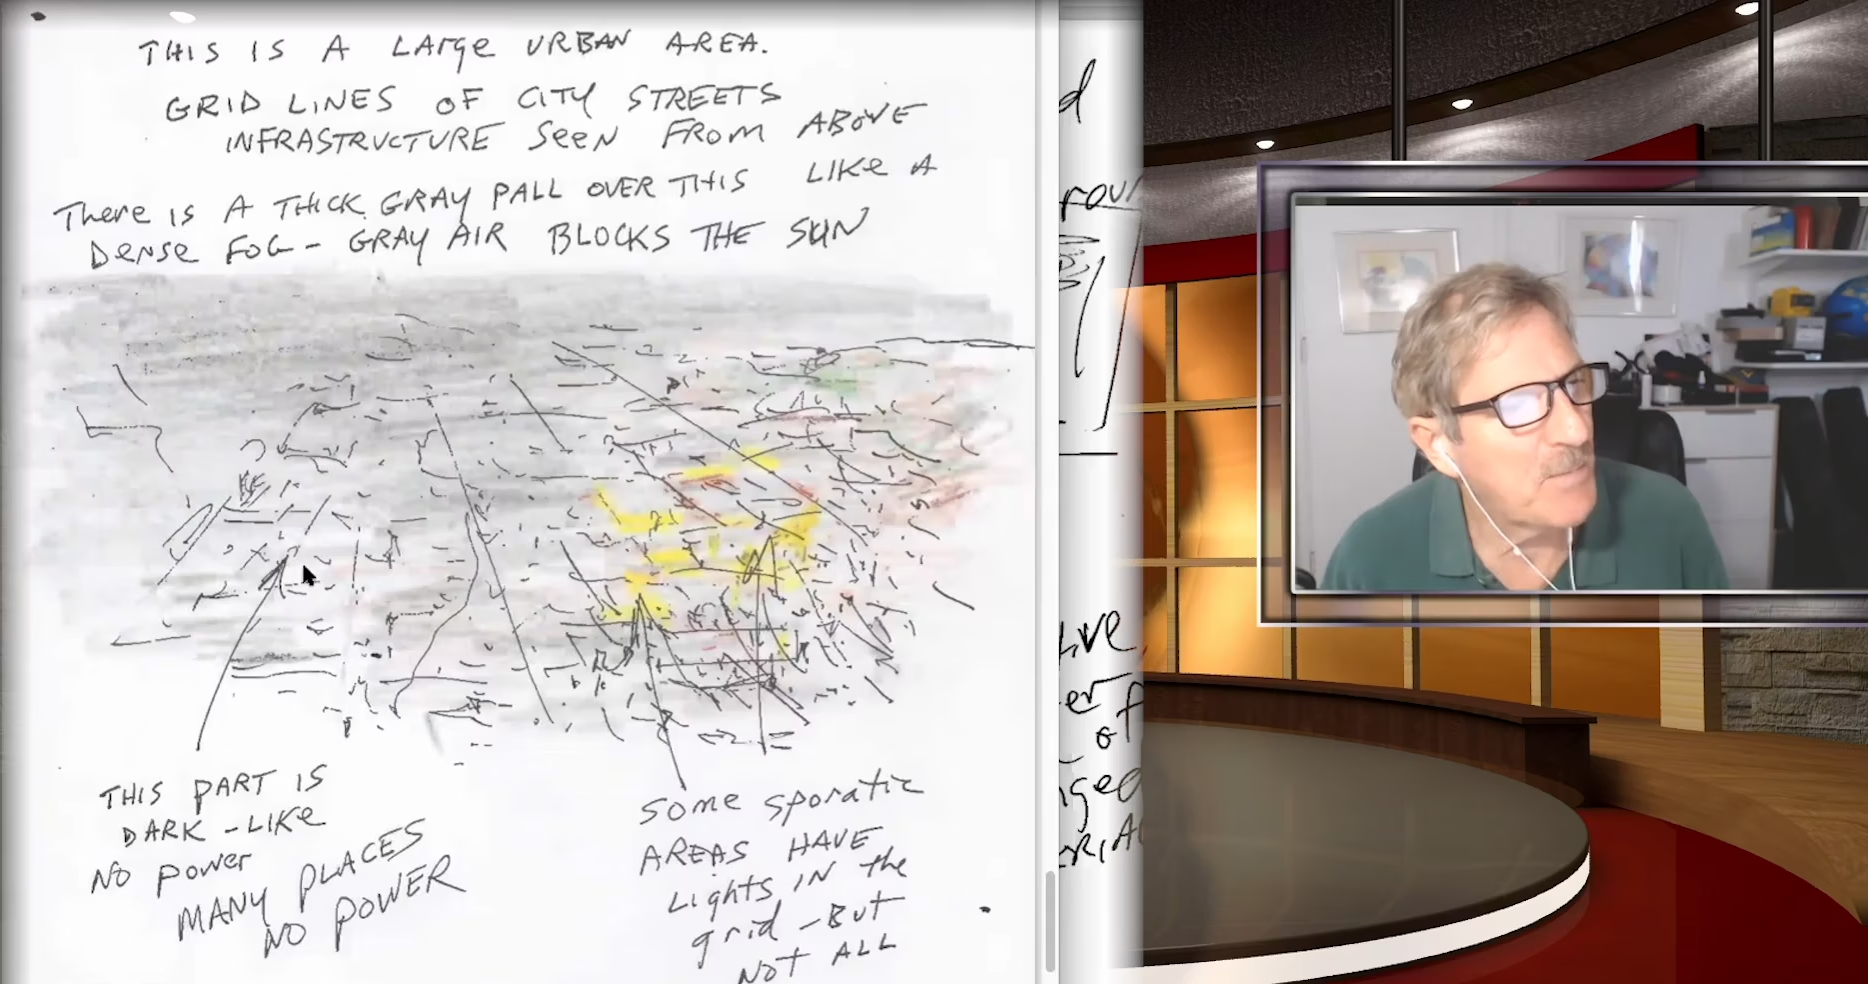 THIS IS A LARge URBAN AREA.
GRID LINES OF CITY STREETS
INFRASTRUCTURE SeeN FROM ABOVE
THere IS A THICK GRAY PALL OVER THIS LIKe A
DeNse FOG - GRAY AIR BLOCKS THE SUN
THIS PART IS
DARK - LIKe
NO Power
MANY PLACES
NO POWER
Some sporatic
AREAS HAVE
Lights IN the
grid - But
Not ALL
d
of